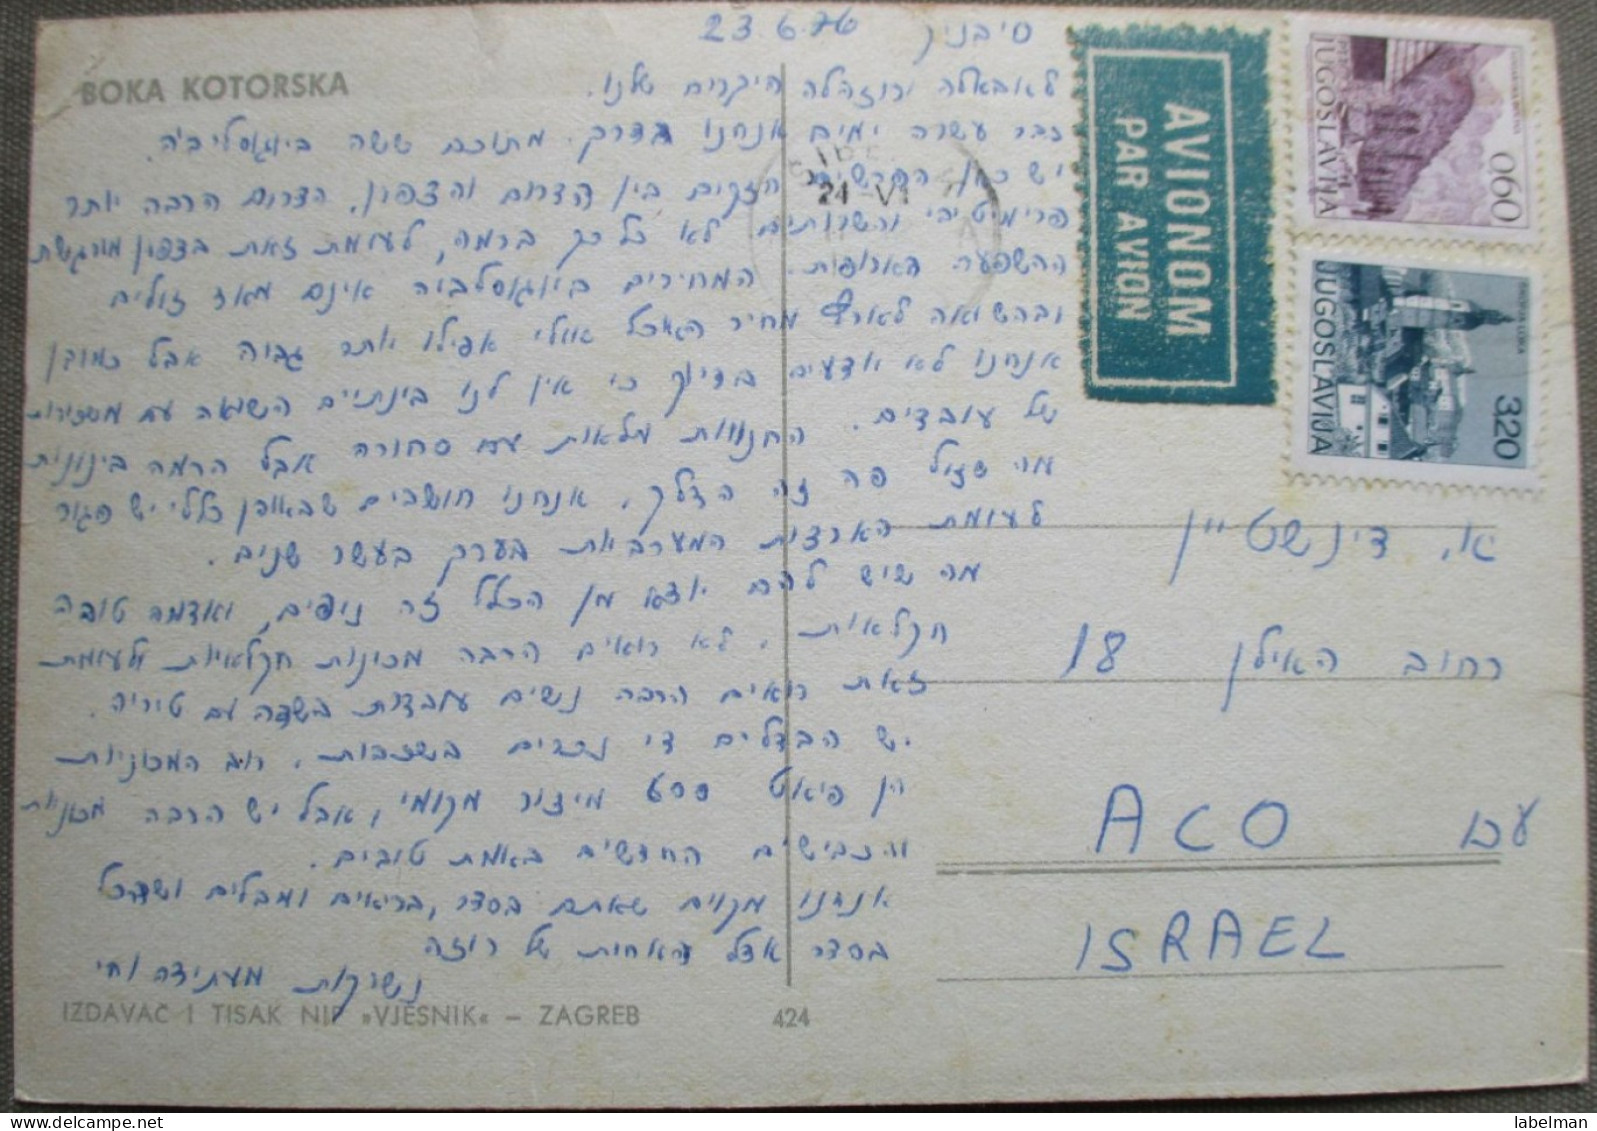 BOKA KOTORSKA
סיבניק 23.6.76
היקרים שלנו.
כבר עשרה ימים אנחנו בדרך. מתוכם ששה ביוגוסלביה.
יש כאן הפרשים חזקים בין הדרום והצפון. הדרום הרבה יותר
פרימיטיבי והשרותים לא כל כך ברמה, לעומת זאת בצפון מורגשת
ההשפעה האירופית. המחירים ביוגוסלביה אינם מאד זולים
ובהשואה לארץ מחיר האוכל אולי אפילו יותר גבוה אבל כמובן
אנחנו לא יודעים בדיוק כי אין לנו בינתיים השואה עם משכורות
של עובדים. החנויות מלאות עם סחורה אבל הרמה בינונית
מה שזול פה זה הדלק. אנחנו חושבים שבאופן כללי יש פגור
לעומת הארצות המערביות בערך בעשר שנים.
מה שיש להם יוצא מן הכלל זה נופים, ואדמה טובה
חקלאות. לא רואים הרבה מכונות חקלאיות לעומת
זאת רואים הרבה נשים עובדות בשדה עם טוריה.
יש הבדלים די נכרים בשכבות. רוב המכוניות
הן פיאט 600 מיצור מקומי, אבל יש הרבה מכוניות
והכבישים החדשים באמת טובים.
אנחנו מקוים שאתם בסדר, בריאים ומבלים ושהכל
בסדר אצל האחות של רוזה
נשיקות מעתידה וחי
IZDAVAČ I TISAK NIP »VJESNIK« – ZAGREB
424
AVIONOM
PAR AVION
24 -VI
JUGOSLAVIJA
0,60
JUGOSLAVIJA
3,20
א. דינשטיין
רחוב האילן 18
עכו ACO
ISRAEL